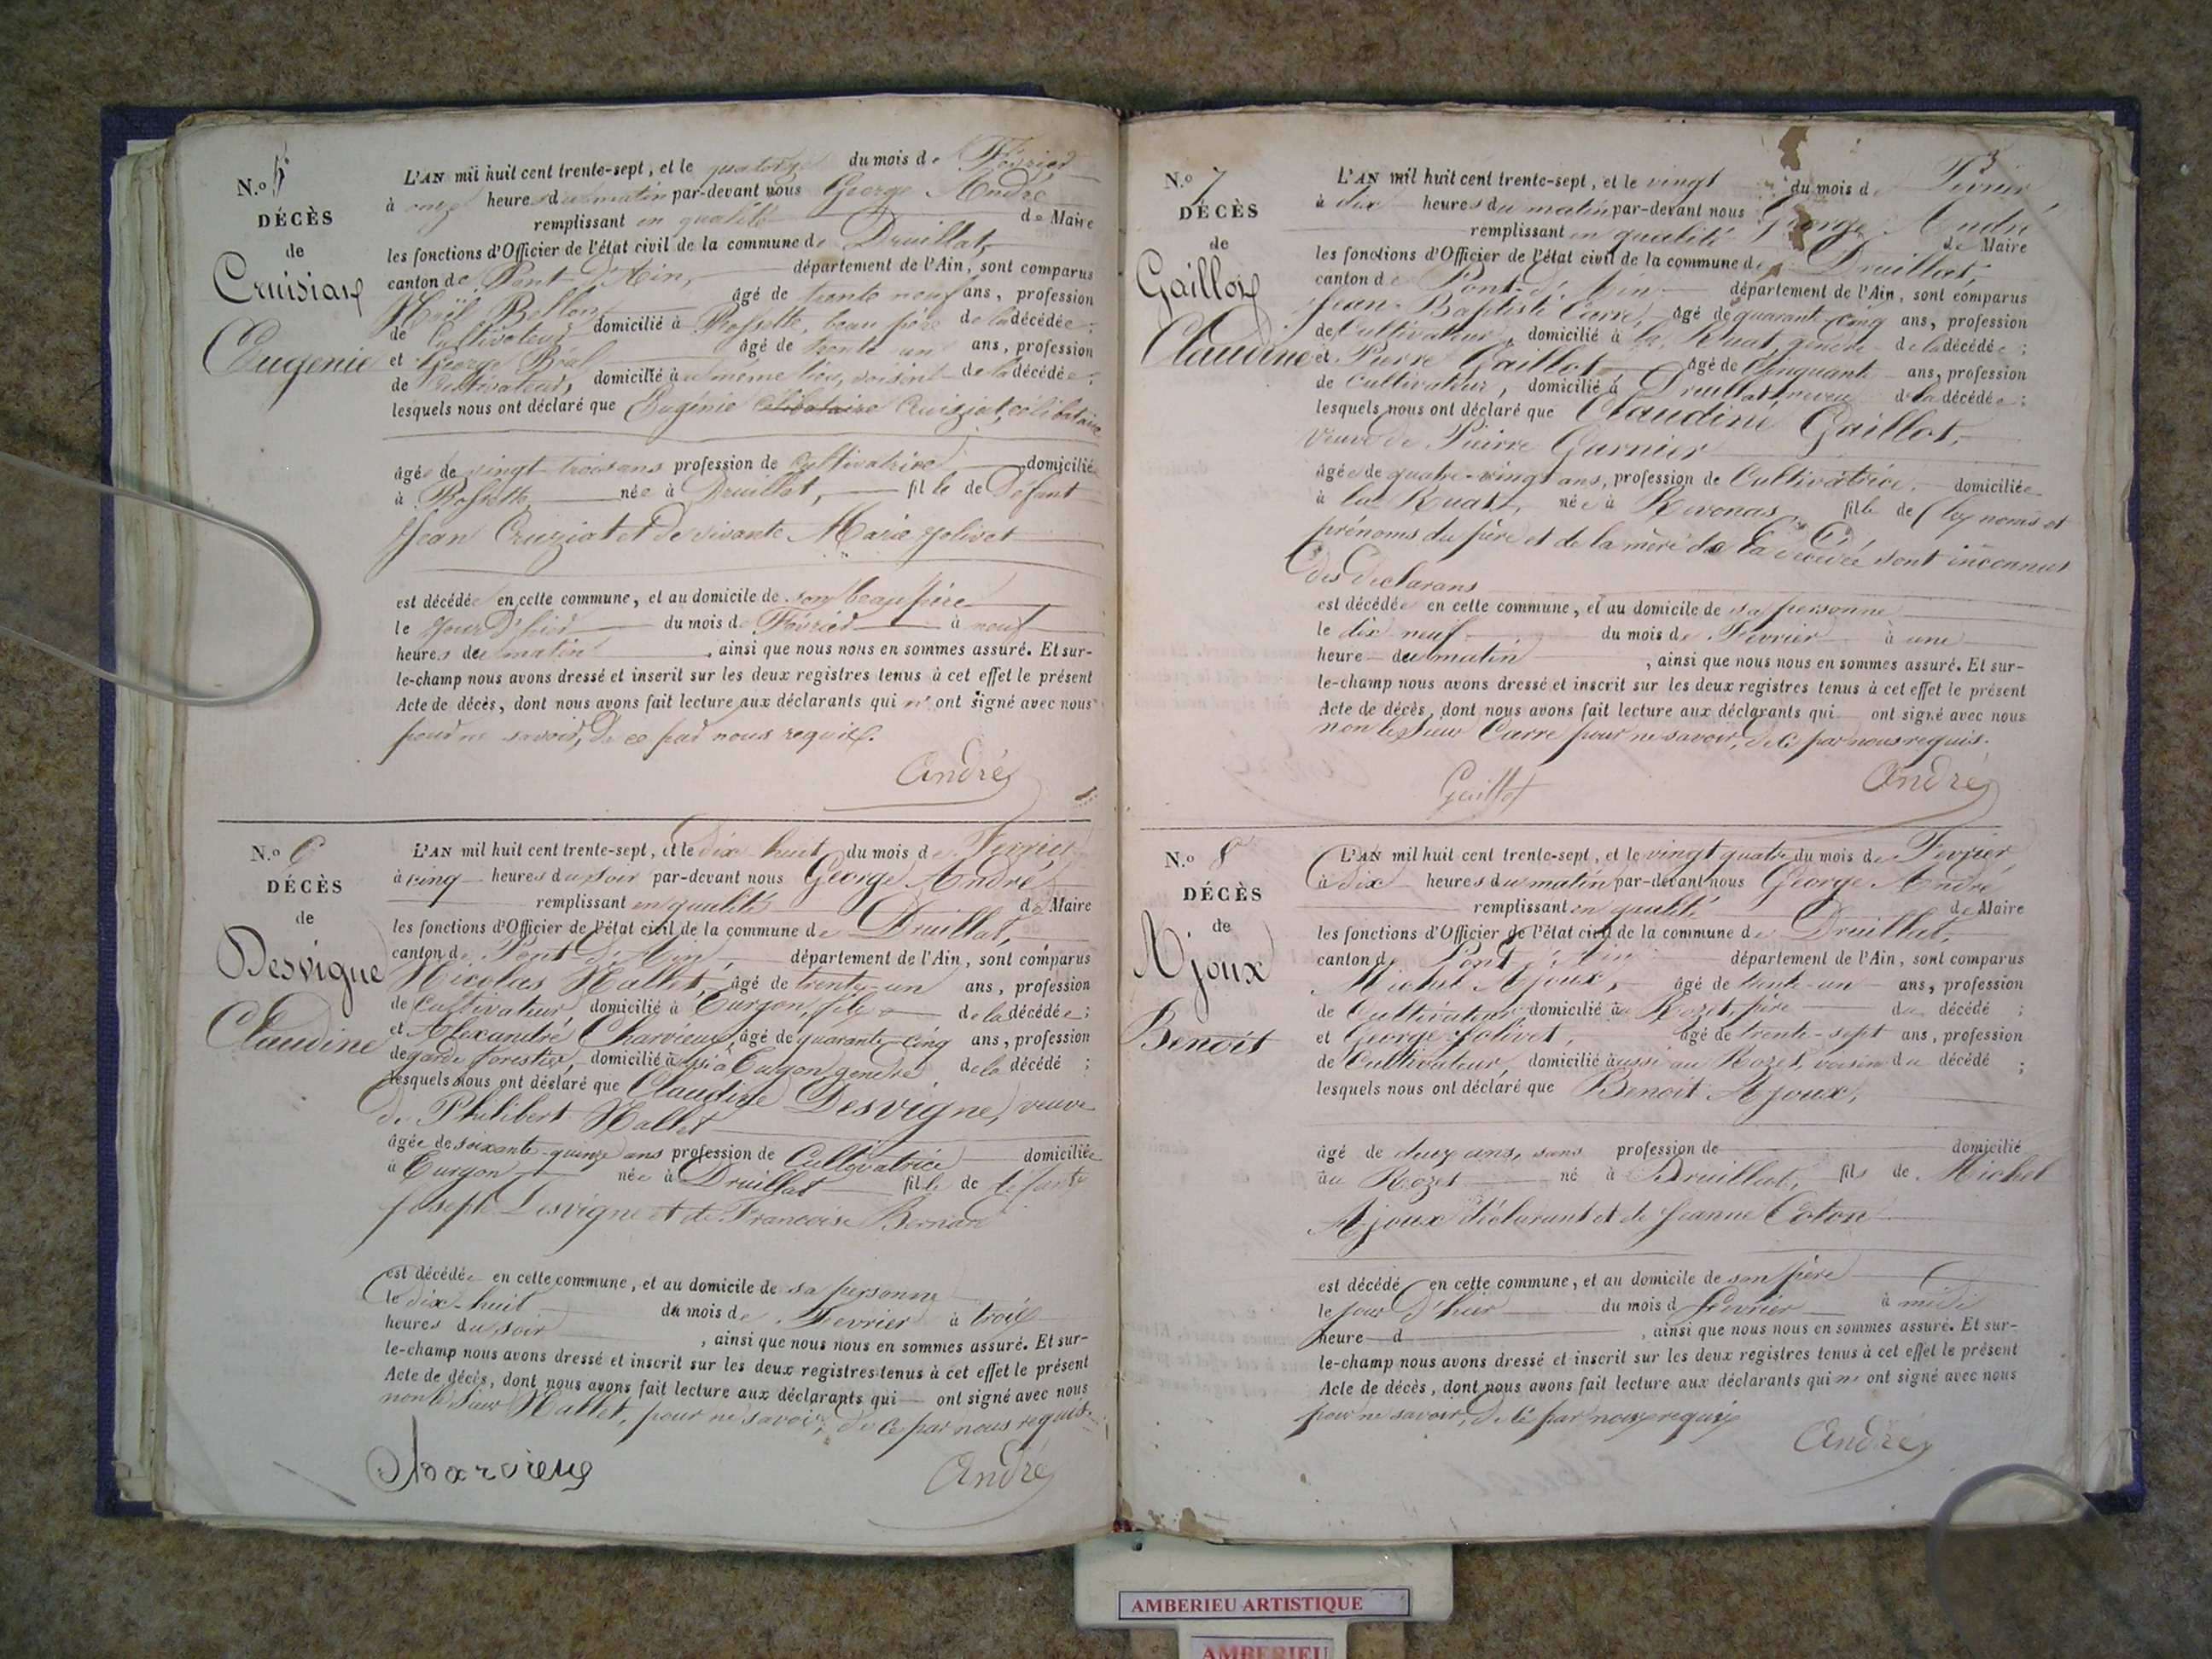 N.º 5
DÉCÈS
de
Cruisiat
Eugénie
L'AN mil huit cent trente-sept, et le quatorze du mois de Février
à onze heures du matin par-devant nous George André
remplissant en qualité de Maire
les fonctions d'Officier de l'état civil de la commune de Druillat,
canton de Pont d'Ain, département de l'Ain, sont comparus
Bellon âgé de trente neuf ans, profession
de Cultivateur domicilié à Rossette, beau père de la décédée;
et George Béal âgé de trente un ans, profession
de Cultivateur, domicilié au même lieu, voisin de la décédée;
lesquels nous ont déclaré que Eugénie célibataire Cruiziat, célibataire
âgée de vingt trois ans profession de Cultivatrice domiciliée
à Rossette, née à Druillat, fille de Défunt
Jean Cruziat et de vivante Marie Jolivet
est décédée en cette commune, et au domicile de son beau père
le Jour d'hier du mois de Février à neuf
heures du matin, ainsi que nous nous en sommes assuré. Et sur-
le-champ nous avons dressé et inscrit sur les deux registres tenus à cet effet le présent
Acte de décès, dont nous avons fait lecture aux déclarants qui n'ont signé avec nous
pour ne savoir, de ce par nous requis.
André
N.º 6
DÉCÈS
de
Desvigne
Claudine
L'AN mil huit cent trente-sept, et le dix huit du mois de Fevrier
à cinq heures du soir par-devant nous George André
remplissant en qualité de Maire
les fonctions d'Officier de l'état civil de la commune de Druillat,
canton de Pont d'Ain, département de l'Ain, sont comparus
Nicolas Hallet, âgé de trente-un ans, profession
de Cultivateur domicilié à Turgon, fils de la décédée;
et Alexandre Charvieux, âgé de quarante-cinq ans, profession
de garde forestier, domicilié aussi à Turgon, gendre de la décédé;
lesquels nous ont déclaré que Claudine Desvigne, veuve
de Philibert Hallet
âgée de soixante-quinze ans profession de Cultivatrice domiciliée
à Turgon née à Druillat fille de défunts
Joseph Desvigne et de Francoise Bernard
est décédée en cette commune, et au domicile de sa personne
le dix-huit du mois de Fevrier à trois
heures du soir, ainsi que nous nous en sommes assuré. Et sur-
le-champ nous avons dressé et inscrit sur les deux registres tenus à cet effet le présent
Acte de décès, dont nous avons fait lecture aux déclarants qui ont signé avec nous
non le Sieur Hallet, pour ne savoir, de ce par nous requis.
Charvieux
André
3
N.º 7
DÉCÈS
de
Gaillot
Claudine
L'AN mil huit cent trente-sept, et le vingt du mois de Fevrier
à dix heures du matin par-devant nous George André
remplissant en qualité de Maire
les fonctions d'Officier de l'état civil de la commune de Druillat,
canton de Pont-d'Ain département de l'Ain, sont comparus
Jean-Baptiste Carre, âgé de quarante-cinq ans, profession
de Cultivateur, domicilié à la Ruat, gendre de la décédée;
et Pierre Gaillot, âgé de Cinquante ans, profession
de Cultivateur, domicilié à Druillat neveu de la décédée;
lesquels nous ont déclaré que Claudine Gaillot,
veuve de Pierre Garnier
âgée de quatre-vingt ans, profession de Cultivatrice, domiciliée
à la Ruat, née à Revonas, fille de (les noms et
prénoms du père et de la mère de la décédée sont inconnus
des declarans
est décédée en cette commune, et au domicile de sa personne
le dix neuf du mois de Fevrier à une
heure du matin, ainsi que nous nous en sommes assuré. Et sur-
le-champ nous avons dressé et inscrit sur les deux registres tenus à cet effet le présent
Acte de décès, dont nous avons fait lecture aux déclarants qui ont signé avec nous
non le Sieur Carre pour ne savoir, de ce par nous requis.
Gaillot
André
N.º 8
DÉCÈS
de
Ajoux
Benoit
L'AN mil huit cent trente-sept, et le vingt quatre du mois de Fevrier
à dix heures du matin par-devant nous George André
remplissant en qualité de Maire
les fonctions d'Officier de l'état civil de la commune de Druillat,
canton de Pont d'Ain département de l'Ain, sont comparus
Michel Ajoux, âgé de trente-un ans, profession
de Cultivateur domicilié au Rozet, père du décédé;
et George Jolivet, âgé de trente-sept ans, profession
de Cultivateur, domicilié aussi au Rozet, voisin du décédé;
lesquels nous ont déclaré que Benoit Ajoux,
âgé de deux ans, sans profession de domicilié
au Rozet né à Druillat, fils de Michel
Ajoux déclarant et de Jeanne Coton
est décédé en cette commune, et au domicile de son père
le jour d'hier du mois d Fevrier à midi
heure d, ainsi que nous nous en sommes assuré. Et sur-
le-champ nous avons dressé et inscrit sur les deux registres tenus à cet effet le présent
Acte de décès, dont nous avons fait lecture aux déclarants qui ne ont signé avec nous
pour ne savoir, de ce par nous requis
André
AMBERIEU ARTISTIQUE
AMBERIEU